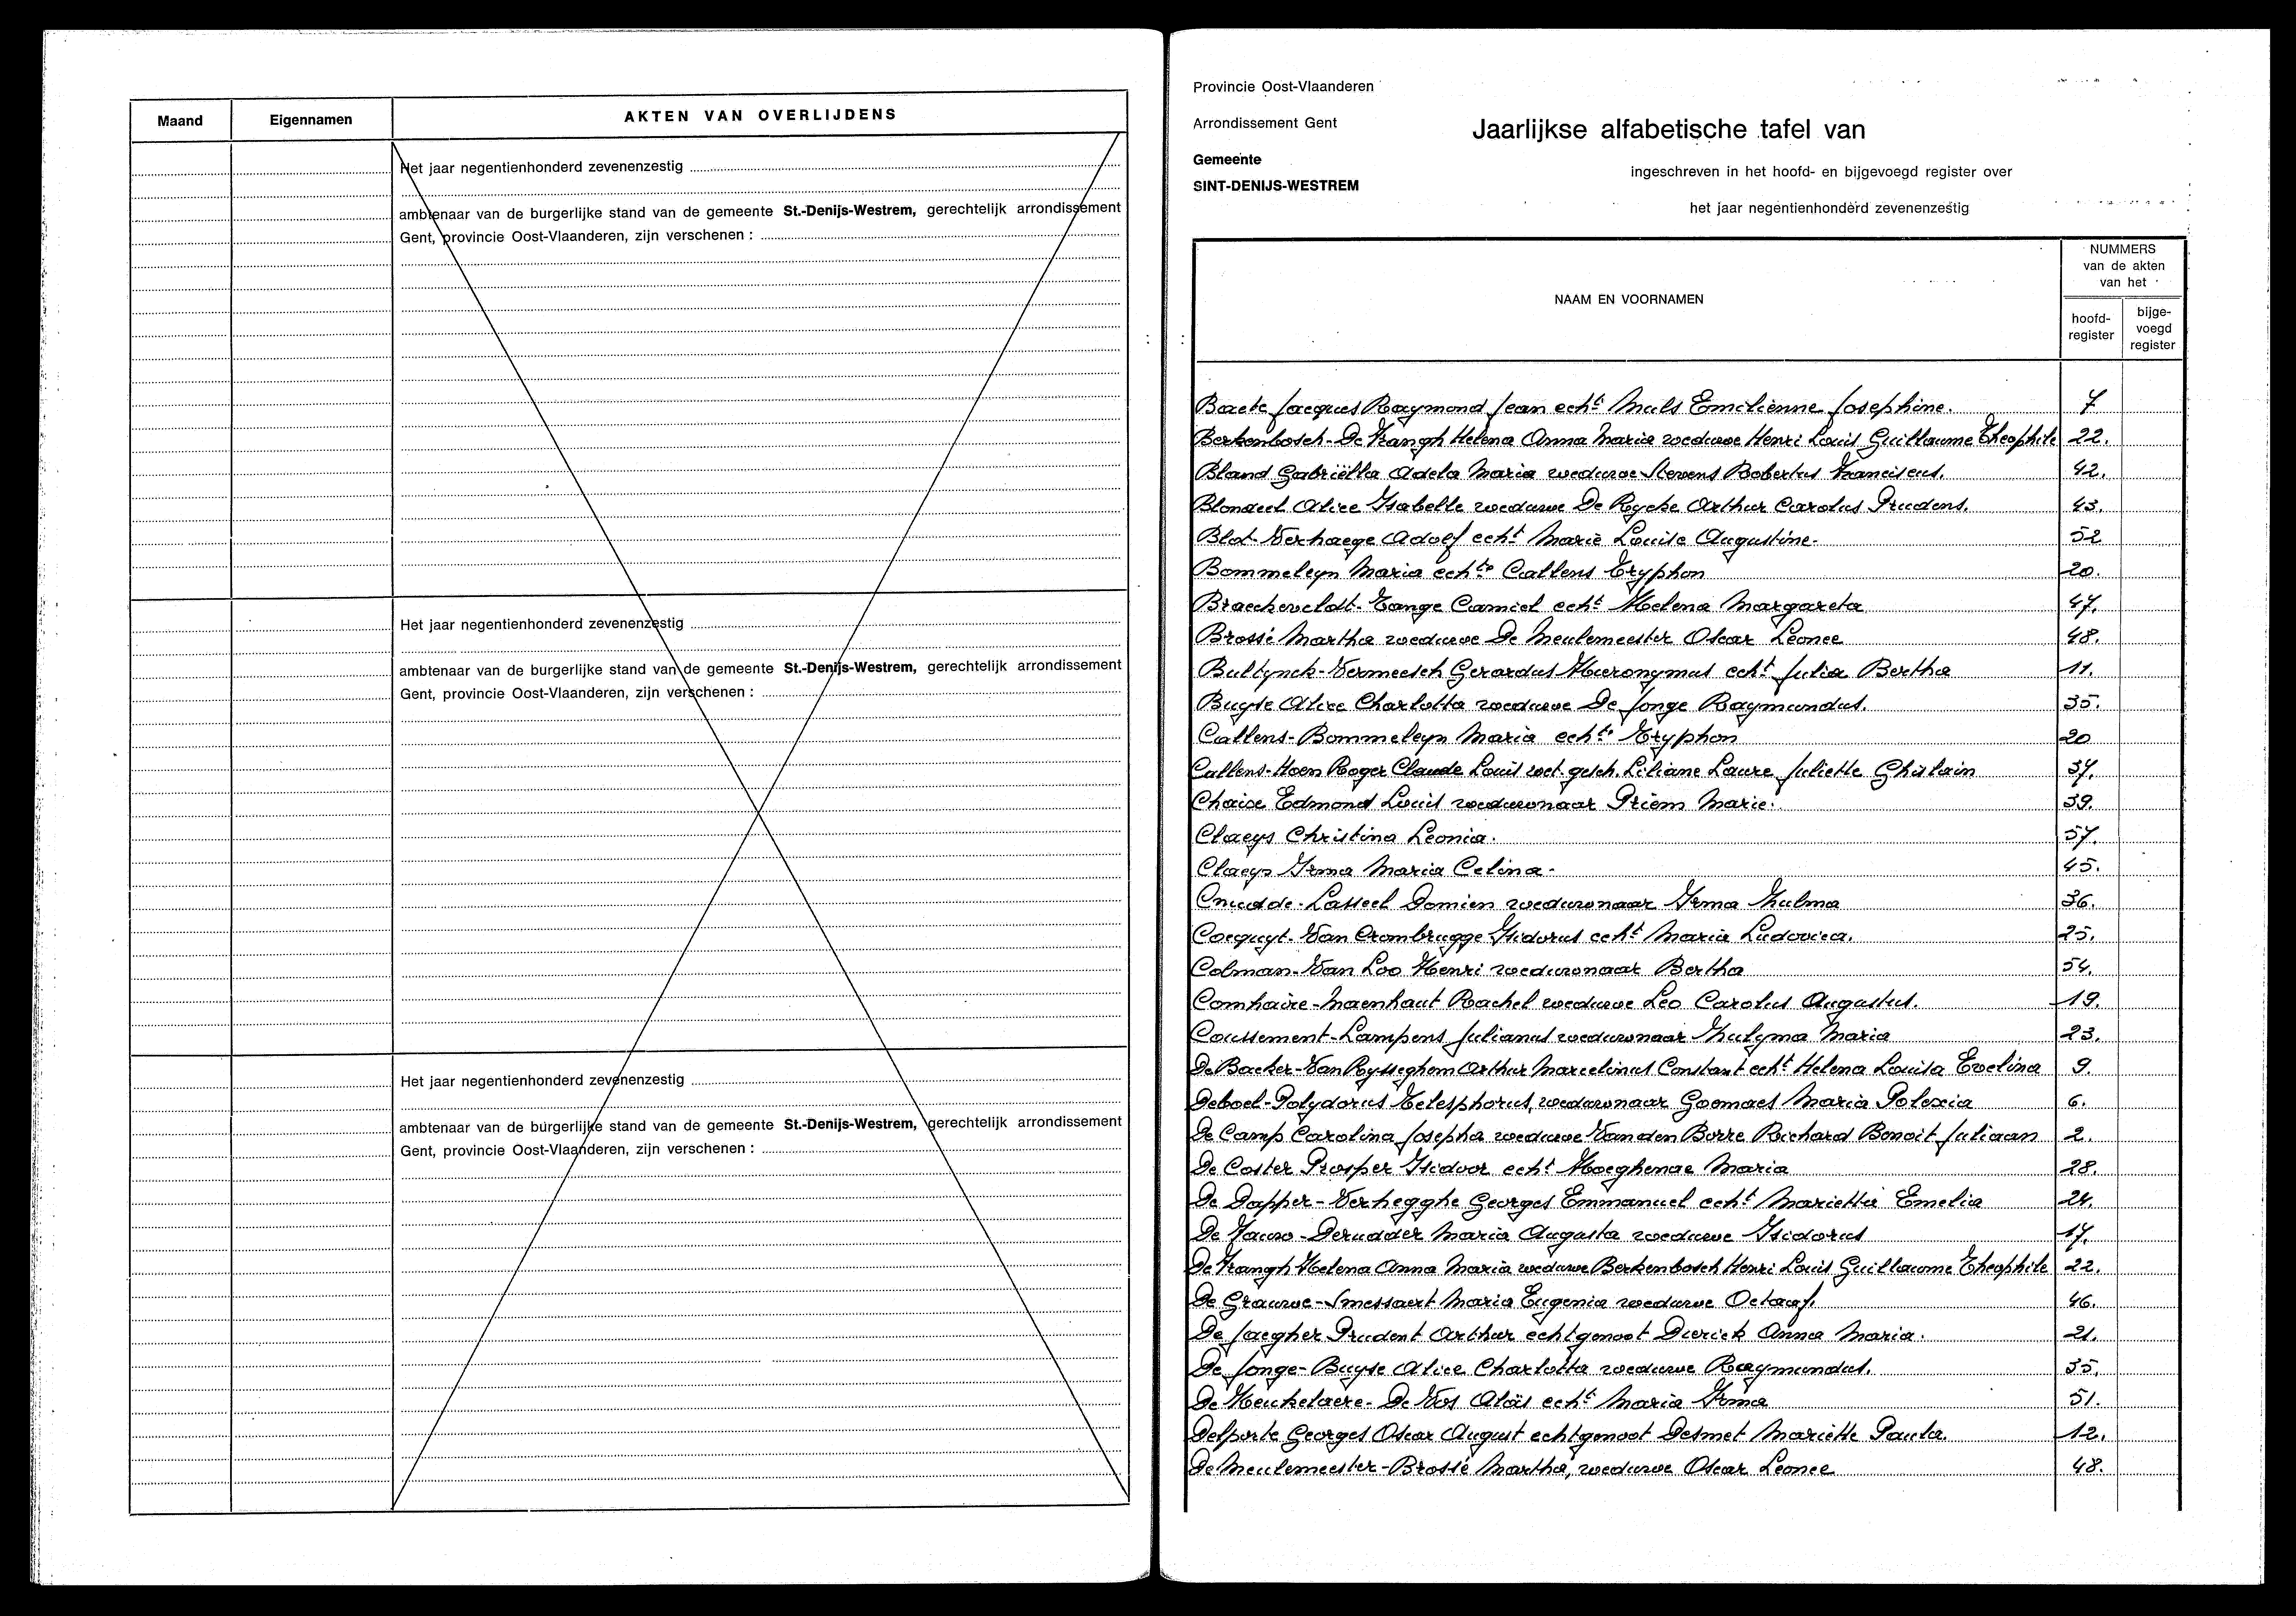 Maand Eigennamen AKTEN VAN OVERLIJDENS
Het jaar negentienhonderd zevenenzestig
ambtenaar van de burgerlijke stand van de gemeente St.-Denijs-Westrem, gerechtelijk arrondissement
Gent, provincie Oost-Vlaanderen, zijn verschenen :
Het jaar negentienhonderd zevenenzestig
ambtenaar van de burgerlijke stand van de gemeente St.-Denijs-Westrem, gerechtelijk arrondissement
Gent, provincie Oost-Vlaanderen, zijn verschenen :
Het jaar negentienhonderd zevenenzestig
ambtenaar van de burgerlijke stand van de gemeente St.-Denijs-Westrem, gerechtelijk arrondissement
Gent, provincie Oost-Vlaanderen, zijn verschenen :
Provincie Oost-Vlaanderen
Arrondissement Gent
Gemeente
SINT-DENIJS-WESTREM
Jaarlijkse alfabetische tafel van
ingeschreven in het hoofd- en bijgevoegd register over
het jaar negentienhonderd zevenenzestig
NAAM EN VOORNAMEN
NUMMERS
van de akten
van het
hoofd-
register
bijge-
voegd
register
Baete Jacques Raymond Jean echt Muls Emilienne Josephine. 7
Berkenbosch-De Frangh Helena Anna Maria weduwe Henri Louis Guillaume Theophile 22.
Bland Gabriëlla Adela Maria weduwe Stevens Robertus Franciscus. 42.
Blondeel Alice Isabelle weduwe De Rycke Arthur Carolus Prudens. 43.
Blot-Verhaege Adolf echt Marie Louise Augustine. 52
Bommeleyn Maria echte Callens Tryphon 20.
Braeckeveldt-Tange Camiel echt Helena Margareta 47.
Brossé Martha weduwe De Meulemeester Oscar Leonce 48.
Bultynck-Vermeesch Gerardus Hieronymus echt Julia Bertha 11.
Buyse Alice Charlotta weduwe De Jonge Raymundus. 35.
Callens-Bommeleyn Maria echte Tryphon 20
Callens-Hoen Roger Claude Louis wet. gesch. Liliane Laure Juliette Ghislain 37.
Chaise Edmond Louis weduwnaar Priem Marie. 39.
Claeys Christina Leonia. 57.
Claeys Irma Maria Celina. 45.
Cnudde-Lasseel Domien weduwnaar Irma Zulma 36.
Cocquyt-Van Crombrugge Isidorus echt Maria Ludovica. 25.
Colman-Van Loo Henri weduwnaar Bertha 54.
Comhaire-Maenhaut Rachel weduwe Leo Carolus Augustus. 19.
Coussement-Lampens Julianus weduwnaar Zulyma Maria 23.
De Backer-Van Rysseghem Arthur Marcelinus Constant echt Helena Louisa Evelina 9.
Deboel-Polydorus Telesphorus, weduwnaar Goemaes Maria Polexia 6.
De Camp Carolina Josepha weduwe Van den Borre Richard Benoit Juliaan 2.
De Coster Prosper Isidoor echt Hoeghenae Maria 28.
De Dapper-Verhegghe Georges Emmanuel echt Marietta Emelia 24.
De Fauw-Derudder Maria Augusta weduwe Isidorus 17.
De Frangh Helena Anna Maria weduwe Berkenbosch Henri Louis Guillaume Theophile 22.
De Grauwe-Smessaert Maria Eugenia weduwe Octaaf. 46.
De Jaegher Prudent Arthur echtgenoot Dierick Anna Maria. 21.
De Jonge-Buyse Alice Charlotta weduwe Raymundus. 35.
De Keukelaere-De Vos Aloïs echt Maria Irma 51.
Delporte Georges Oscar August echtgenoot Desmet Mariette Paula. 12.
De Meulemeester-Brossé Martha, weduwe Oscar Leonce 48.